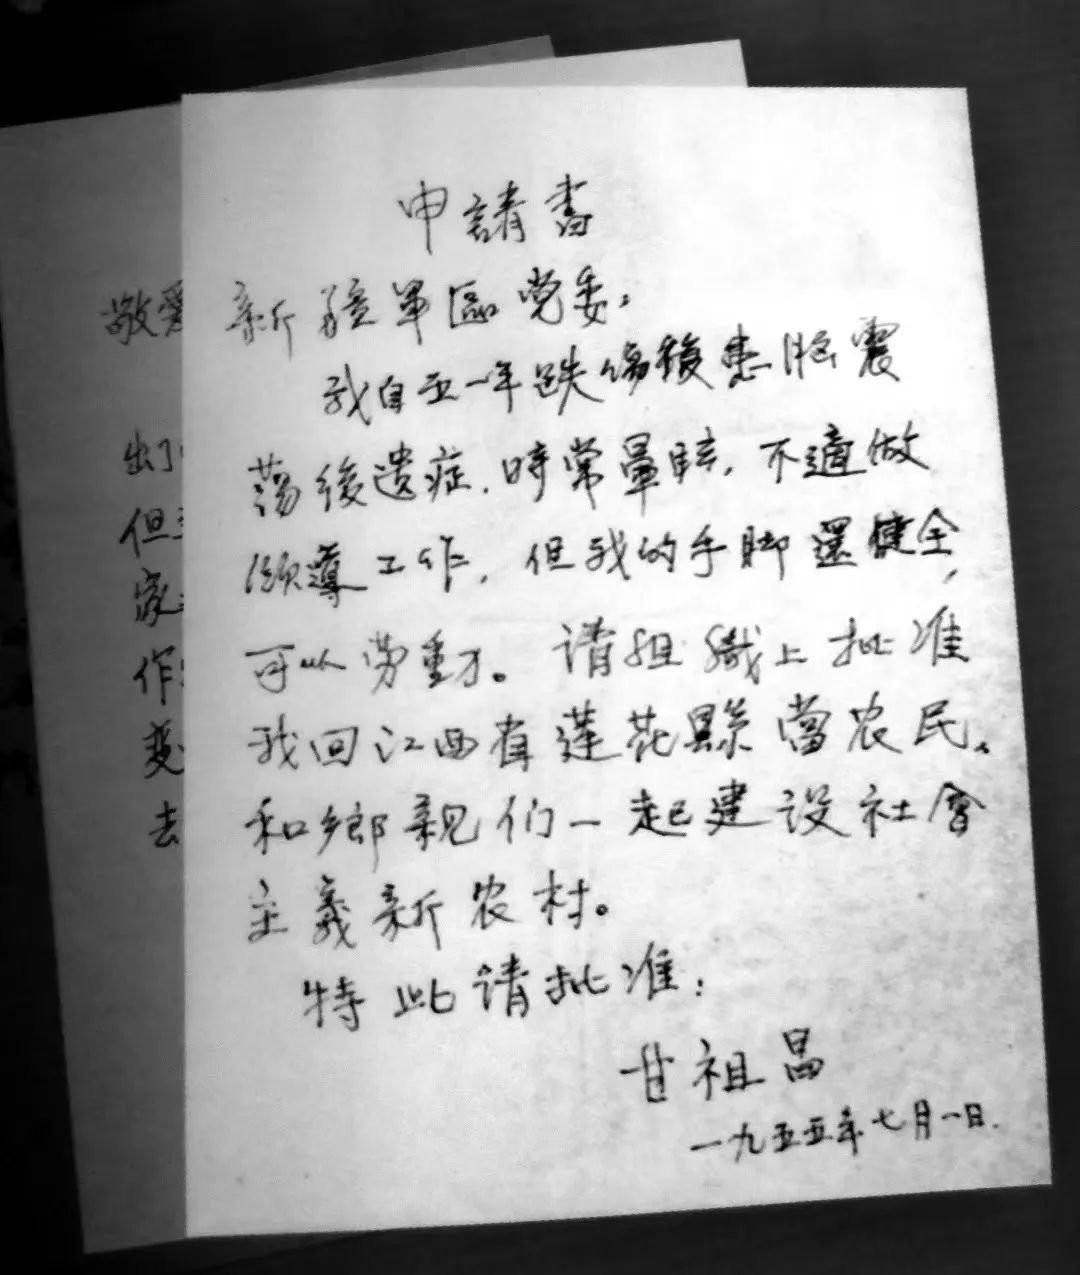 申請書
新疆軍區党委:
我自五一年跌傷後患腦震
蕩後遗症.時常暈眩.不適做
領導工作,但我的手脚還健全,
可以劳動。请组織上批准
我回江西省蓮花縣當农民。
和鄉親们一起建设社會
主義新农村。
特此请批准:
甘祖昌
一九五五年七月一日.
敬爱
出了
但
家
作
变
去